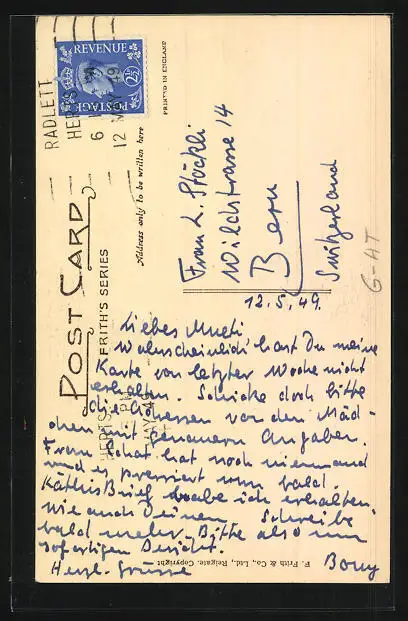 POST CARD
FRITH'S SERIES
Address only to be written here
PRINTED IN ENGLAND
RADLETT
HERTS
6
12 MAY 49
REVENUE
2½D
POSTAGE
Frau L. Stöckli
Wildstrasse 14
Bern
Switzerland
G-AT
12.5.49.
Liebes Mutti
Wahrscheinlich hast Du meine
Karte von letzter Woche nicht
erhalten. Schicke doch bitte
die Adressen von den Mäd-
chen mit genauern Angaben.
Frau hat noch niemand
und es pressiert nun bald.
Käthis Brief habe ich erhalten,
wie auch Deinen. Schreibe
bald mehr. Bitte also um
sofortigen Bericht.
Herzl. Grüsse
HERTS
MAY 49
F. Frith & Co., Ltd., Reigate. Copyright